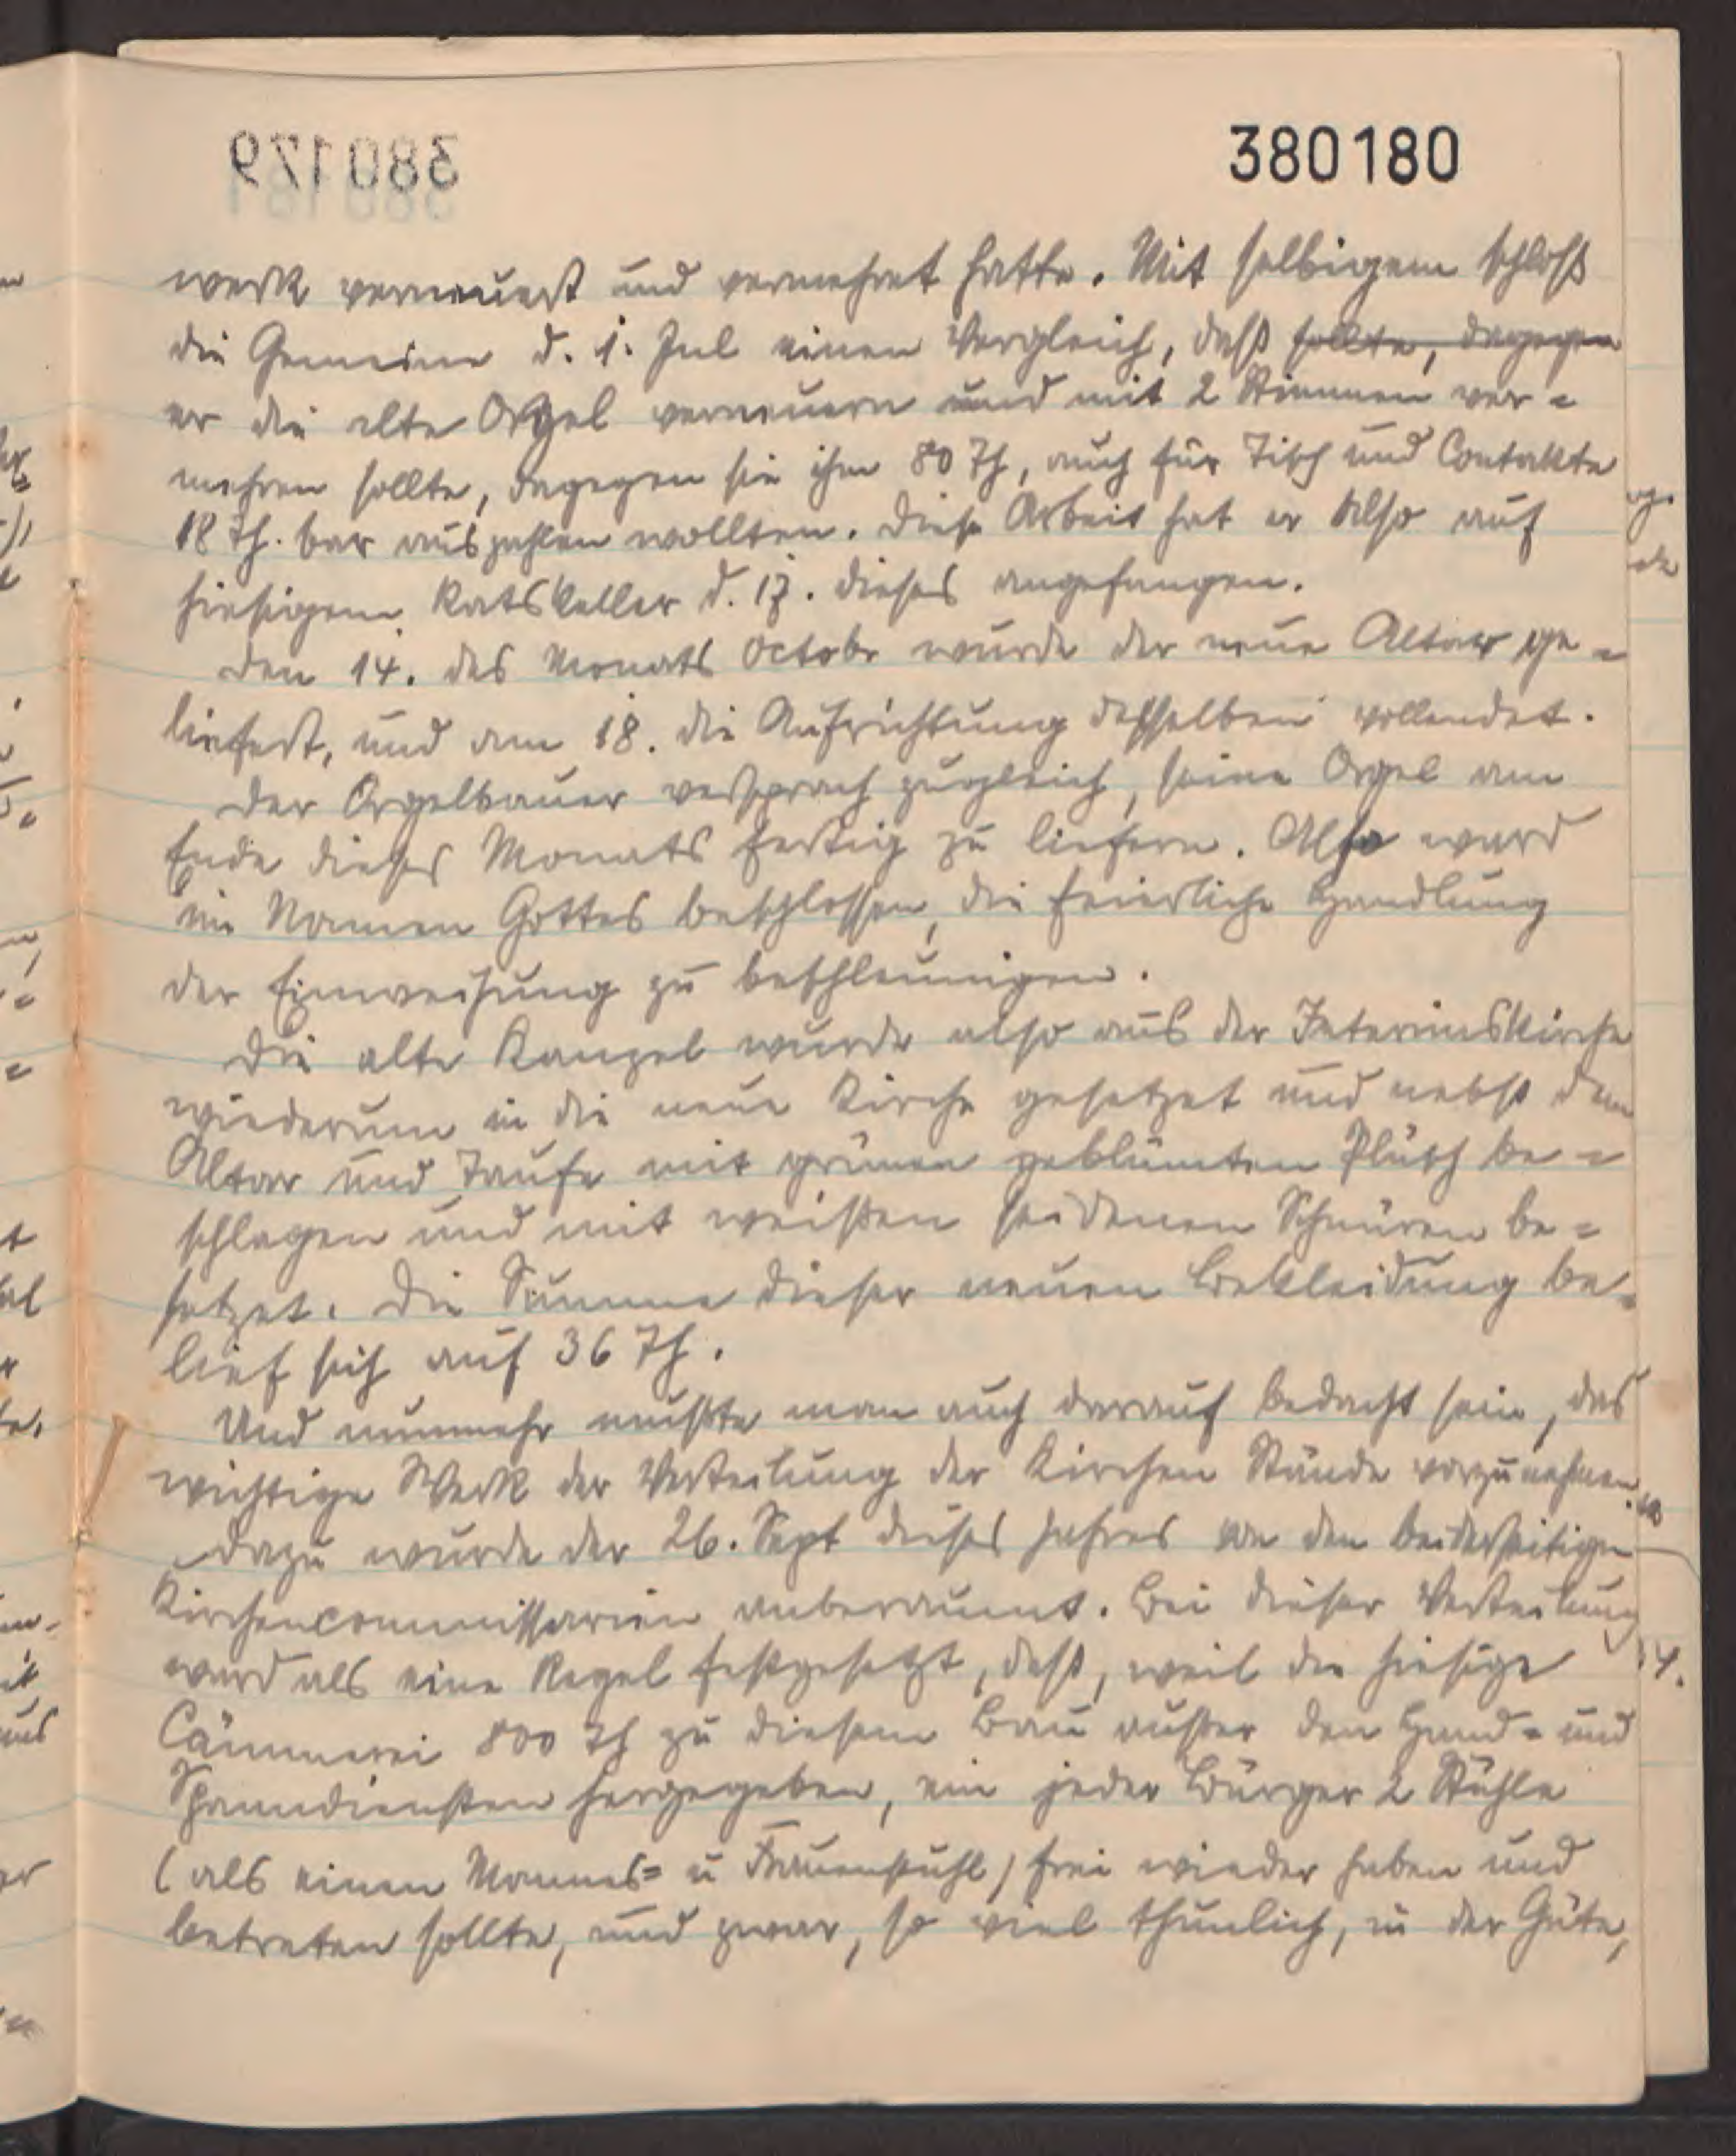 380179
380180
werk verneuert und vermehret hatte. Mit selbigem schloß
die Gemeine d. 1. Jul einen Vergleich, daß sollte, dagegen
er die alte Orgel verneuern und mit 2 Stimmen ver=
mehren sollte, dagegen sie ihm 80 Th, auch für Tisch und Contakte
18 Th. bar auszahlen wollten. Diese Arbeit hat er also auf
hiesigem Ratskeller d. 17. dieses angefangen.
Den 14. des Monats Octobr wurde der neue Altar ge=
liefert, und am 18. die Aufrichtung desselben vollendet.
Der Orgelbauer versprach zugleich, seine Orgel am
Ende dieses Monats fertig zu liefern. Also ward
im Namen Gottes beschlossen, die feierliche Handlung
der Einweihung zu beschleunigen.
Die alte Kanzel wurde also aus der Interimskirche
wiederum in die neue Kirche gesetzet und nebst dem
Altar und Taufe mit grünen geblümten Plüsch be=
schlagen und mit weißen seidenen Schnüren be=
setzet. Die Summe dieser neuen Bekleidung be=
lief sich auf 36 Th.
Und nunmehr mußte man auch darauf bedacht sein, das
wichtige Werk der Verteilung der Kirchen Stände vorzunehmen.
Dazu wurde der 26. Sept dieses Jahres von den beiderseitigen
Kirchencommissarien anberaumt. Bei dieser Verteilung
ward als eine Regel festgesetzt, daß, weil die hiesige
Cämmerei 800 Th zu diesem Bau außer den Hand= und
Spanndiensten hergegeben, ein jeder Bürger 2 Stühle
(als einen Mannes= u Frauenstuhl) frei wieder haben und
betreten sollte, und zwar, so viel thunlich, in der Güte,